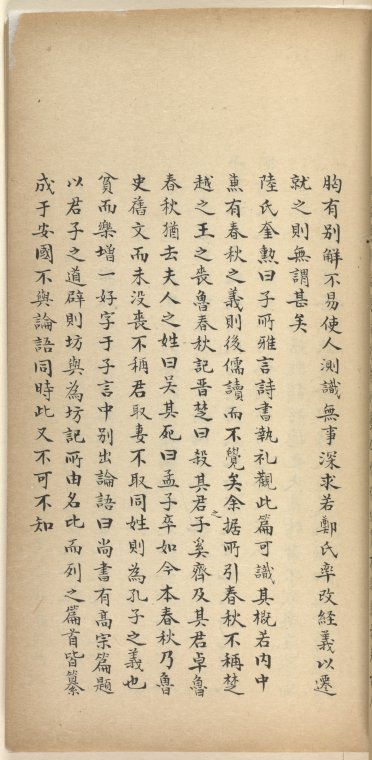 胸有别解不易使人測識無事深求若鄭氏率改経義以遷
就之則無謂甚矣
陸氏奎勲曰子所雅言詩書執礼觀此篇可識其概若内中
蕙有春秋之義則後儒讀而不覺矣余据所引春秋不稱楚
越之王之喪魯春秋記晋楚曰殺其君之子奚齊及其君卓魯
春秋猶去夫人之姓曰吴其死曰孟子卒如今本春秋乃魯
史舊文而未没喪不稱君取妻不取同姓則為孔子之義也
貧而樂增一好字于子言中别出論語曰尚書有高宗篇題
以君子之道辟則坊與為坊記所由名比而列之篇首皆纂
成于安國不與論語同時此又不可不知